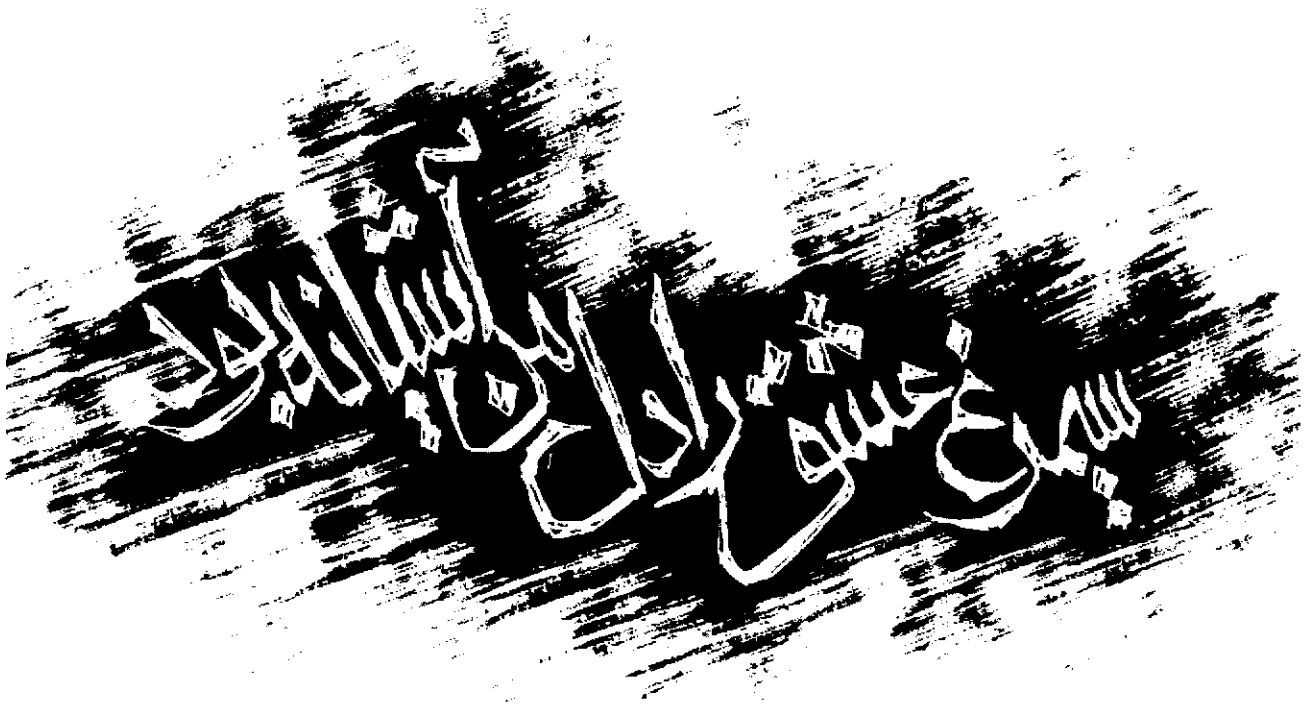 سیمرغ عشق را دل من آشیانه بود